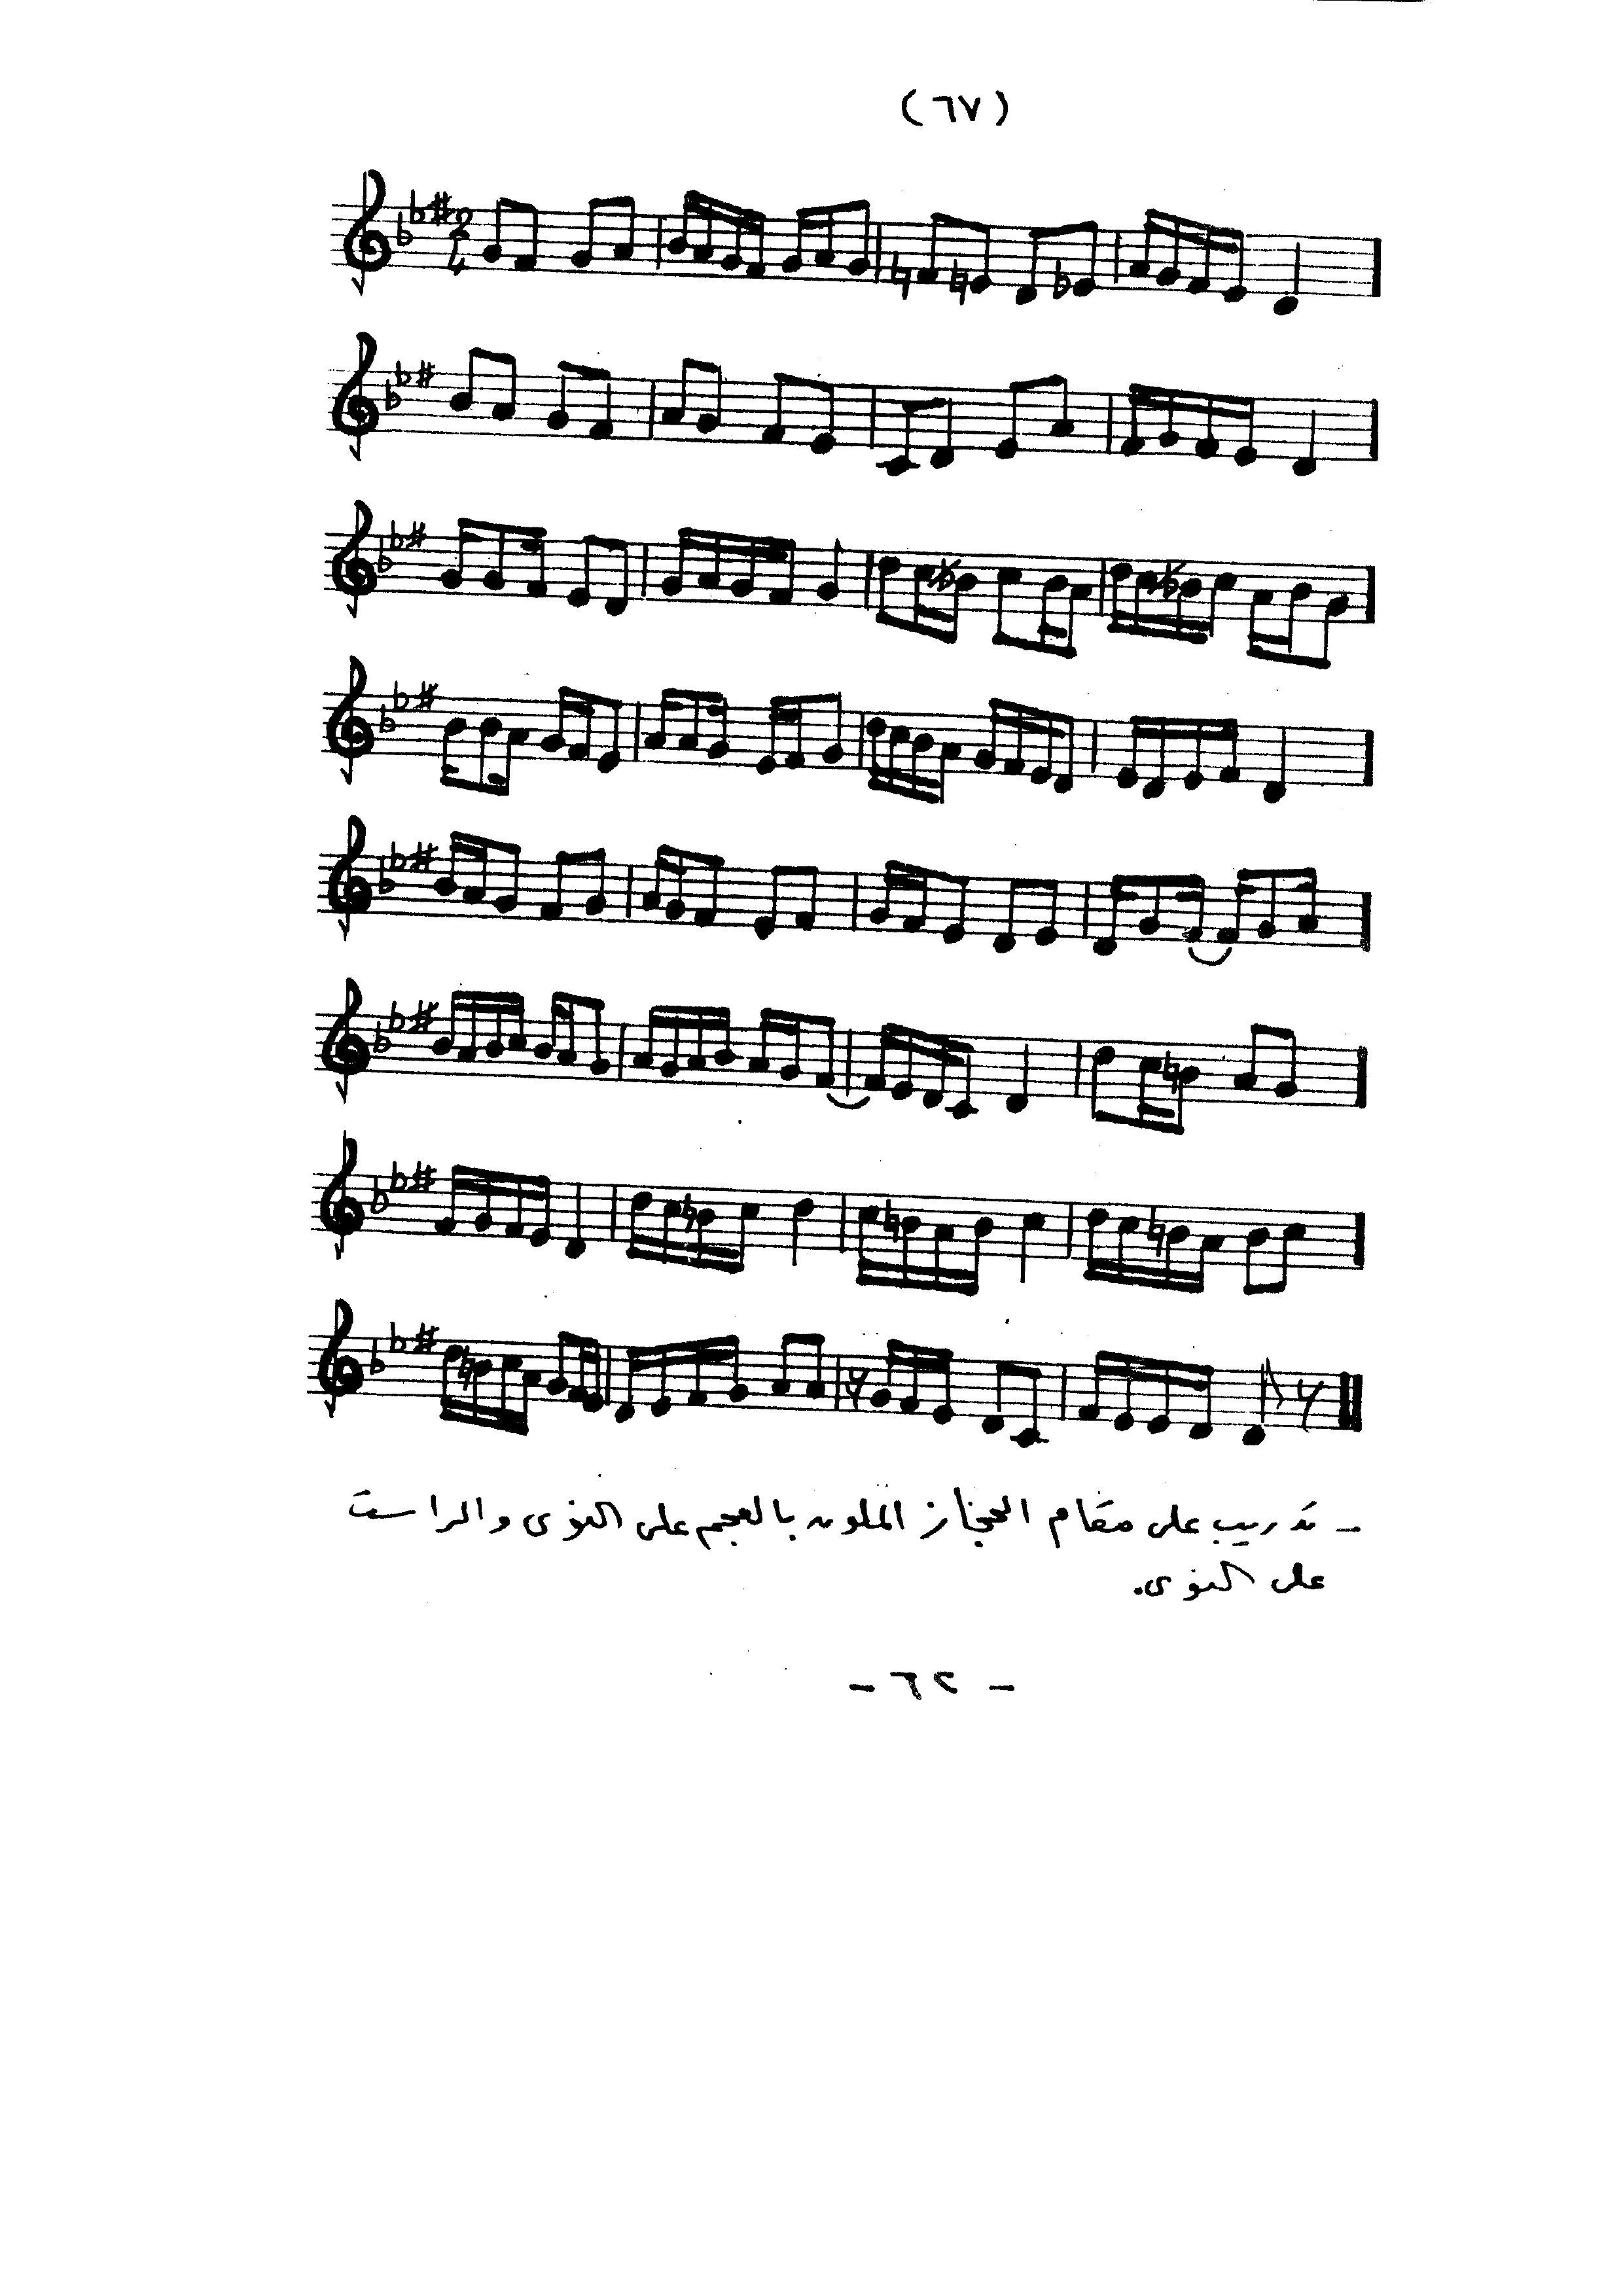 (٦٧)
2
4
- تدريب على مقام الحجاز الملون بالعجم على النوى والراست
على النوى.
- ٦٢ -